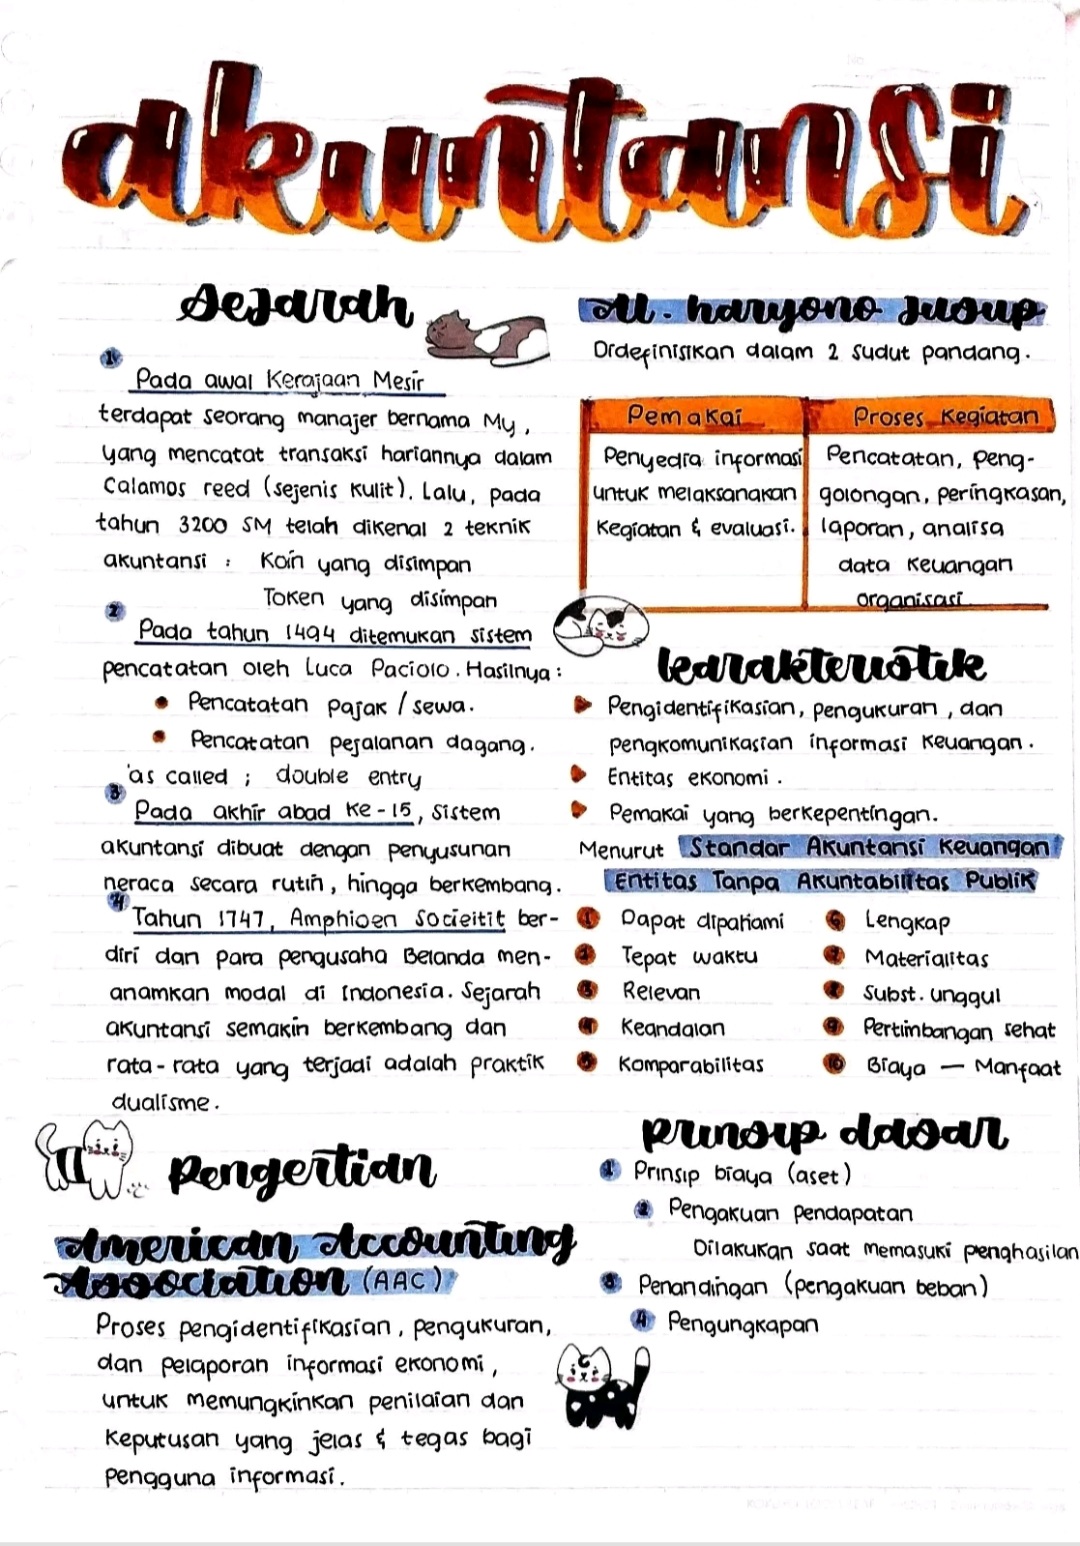 akuntansi
Sejarah
1
Pada awal Kerajaan Mesir
terdapat seorang manajer bernama My,
yang mencatat transaksi hariannya dalam
Calamos reed (sejenis kulit). Lalu, pada
tahun 3200 SM telah dikenal 2 teknik
akuntansi : Koin yang disimpan
Token yang disimpan
2
Pada tahun 1494 ditemukan sistem
pencatatan oleh Luca Paciolo. Hasilnya :
• Pencatatan pajak / sewa.
• Pencatatan pejalanan dagang.
'as called ; double entry
3
Pada akhir abad ke-15, sistem
akuntansi dibuat dengan penyusunan
neraca secara rutin, hingga berkembang.
4
Tahun 1747, Amphioen Socieitit ber-
diri dan para pengusaha Belanda men-
anamkan modal di Indonesia. Sejarah
akuntansi semakin berkembang dan
rata-rata yang terjadi adalah praktik
dualisme.
Pengertian
American Accounting
Association (AAC)
Proses pengidentifikasian, pengukuran,
dan pelaporan informasi ekonomi,
untuk memungkinkan penilaian dan
keputusan yang jelas & tegas bagi
pengguna informasi.
Al. haryono Jusup
Didefinisikan dalam 2 sudut pandang.
Pemakai
Penyedia informasi
untuk melaksanakan
kegiatan & evaluasi.
Proses Kegiatan
Pencatatan, peng-
golongan, peringkasan,
laporan, analisa
data keuangan
organisasi
karakteristik
▶ Pengidentifikasian, pengukuran, dan
pengkomunikasian informasi keuangan.
▶ Entitas ekonomi.
▶ Pemakai yang berkepentingan.
Menurut Standar Akuntansi Keuangan
Entitas Tanpa Akuntabilitas Publik
1 Dapat dipahami
2 Tepat waktu
3 Relevan
4 Keandalan
5 Komparabilitas
6 Lengkap
7 Materialitas
8 Subst. unggul
9 Pertimbangan sehat
10 Biaya — Manfaat
prinsip dasar
1 Prinsip biaya (aset)
2 Pengakuan pendapatan
Dilakukan saat memasuki penghasilan
3 Penandingan (pengakuan beban)
4 Pengungkapan